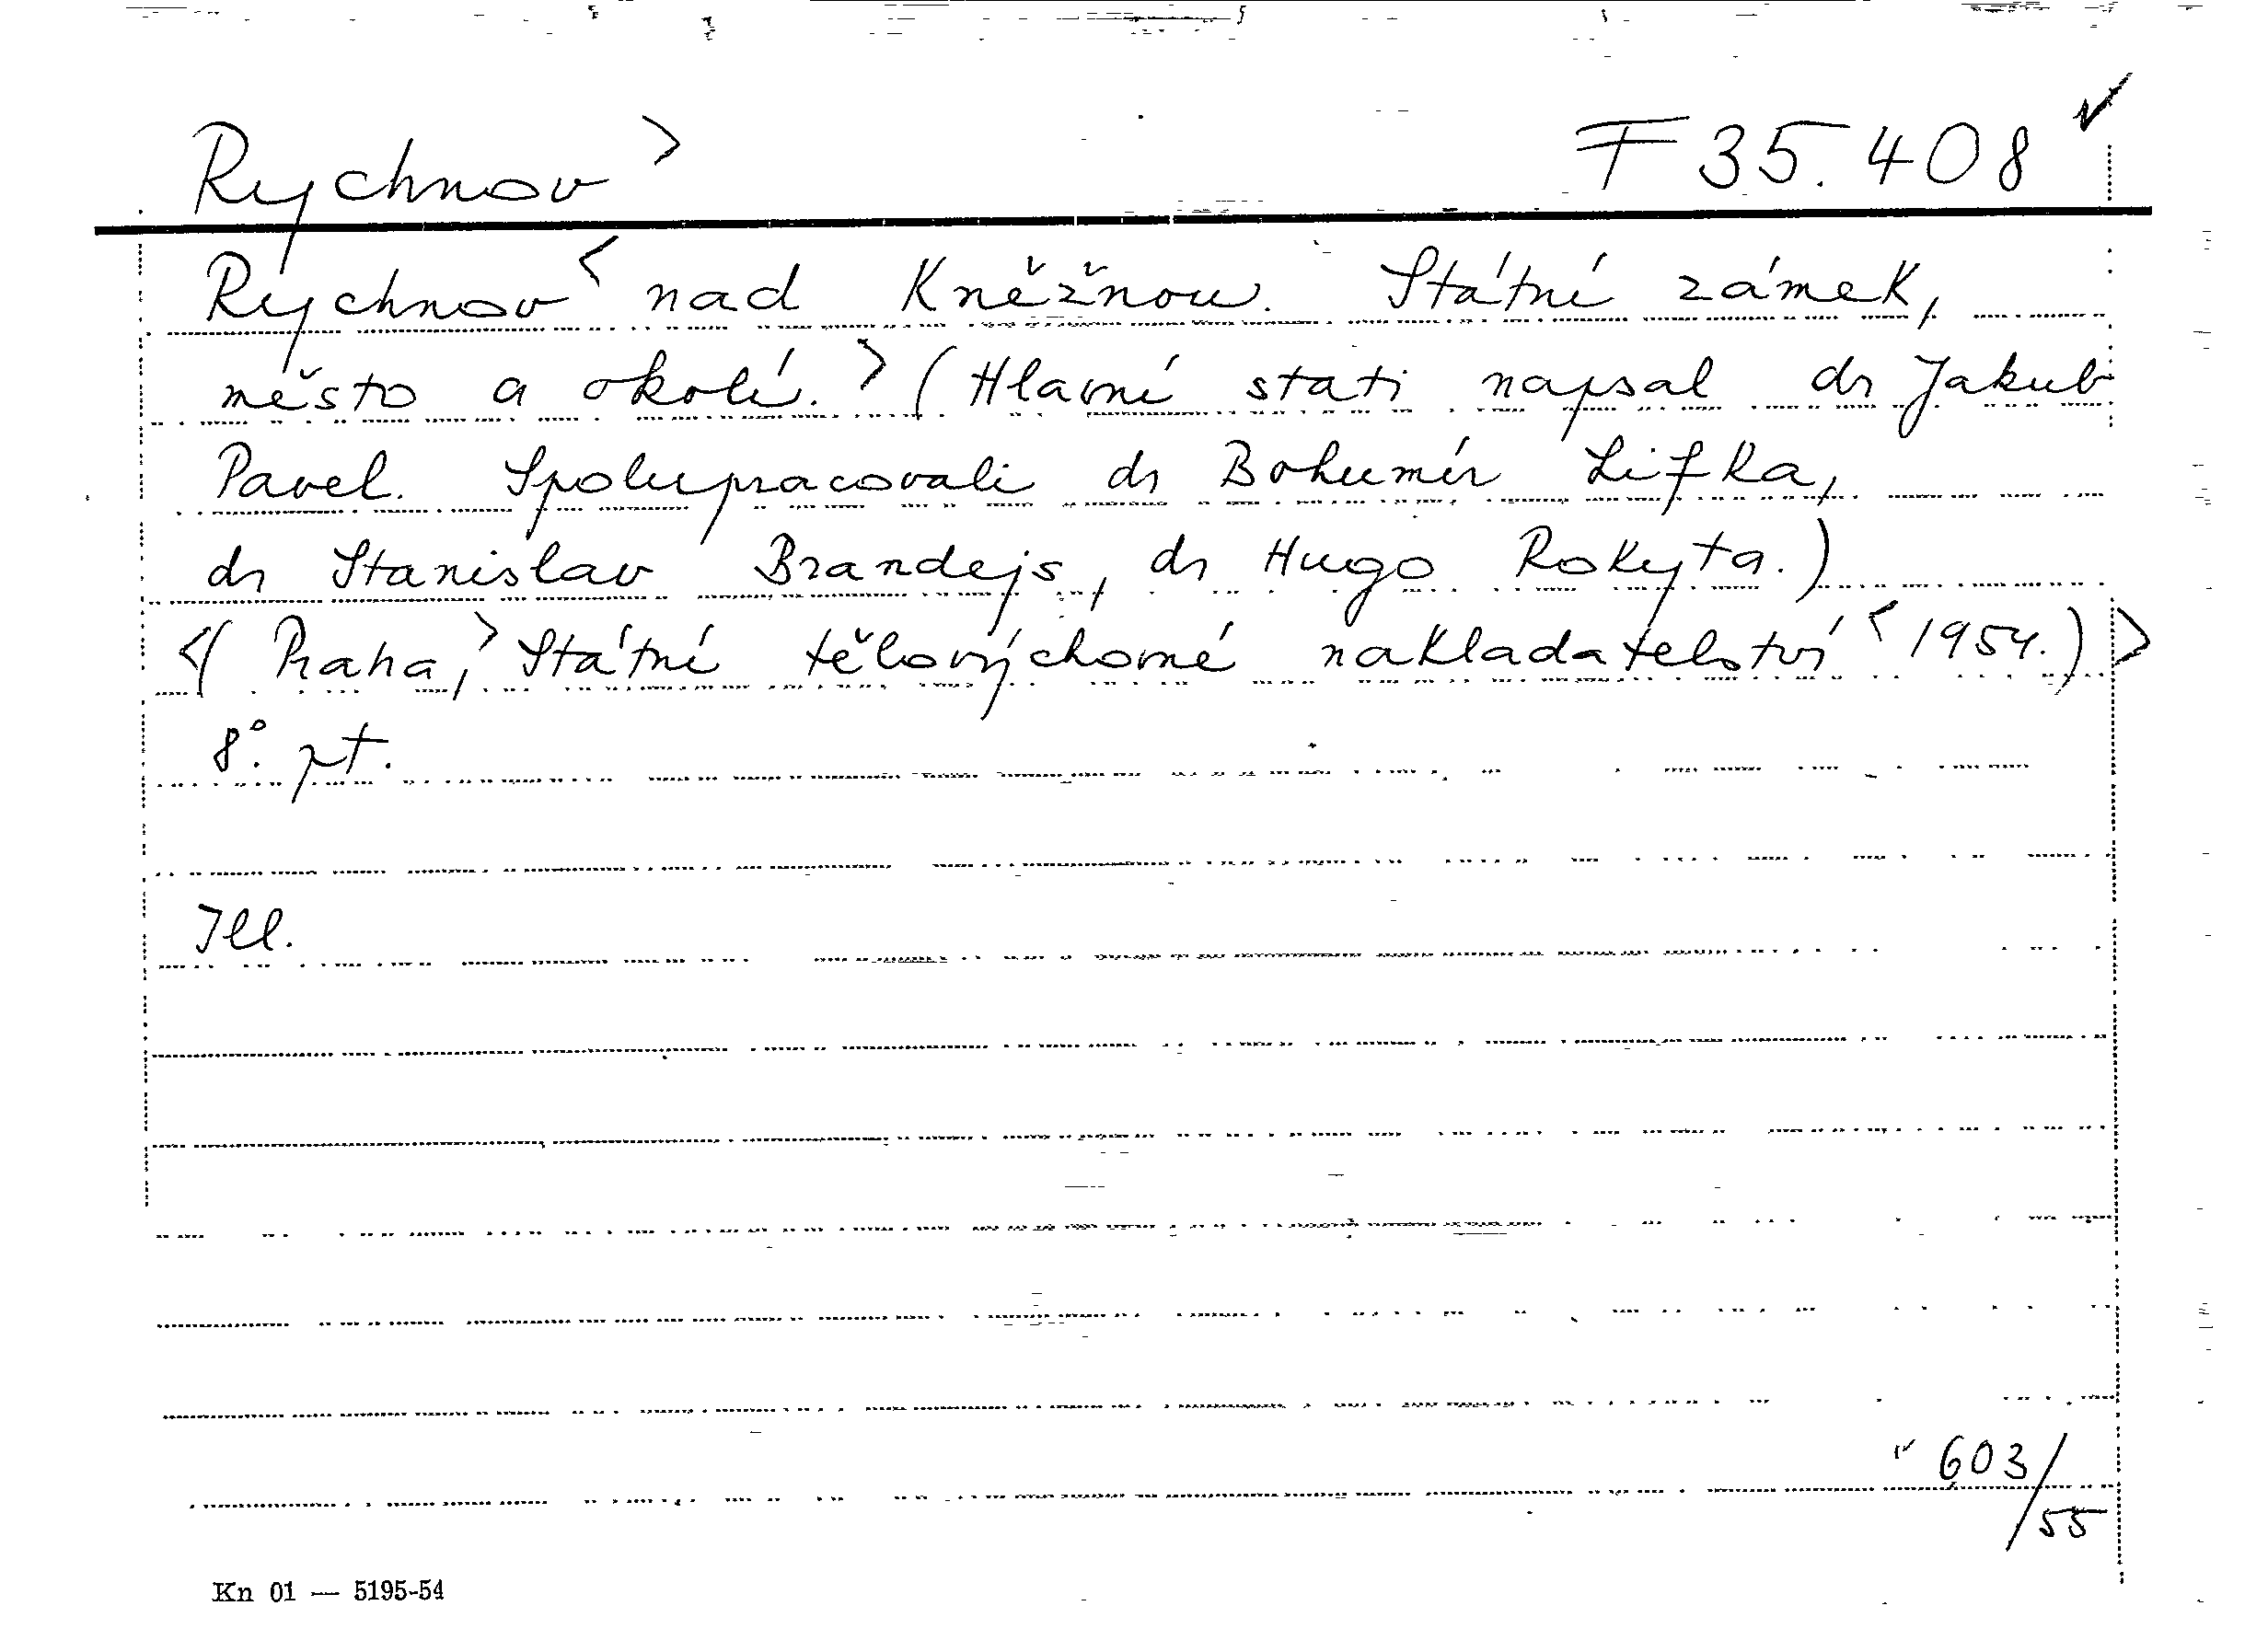 Rychnov > F 35.408 ✓
Rychnov < nad Kněžnou. Státní zámek,
město a okolí. > (Hlavní stati napsal dr Jakub
Pavel. Spolupracovali dr Bohumír Lifka,
dr Stanislav Brandejs, dr Hugo Rokyta.)
<( Praha, > Státní tělovýchovné nakladatelství < 1954.) >
8°. pt.
Ill.
✓ 603/
/55
Kn 01 — 5195-54